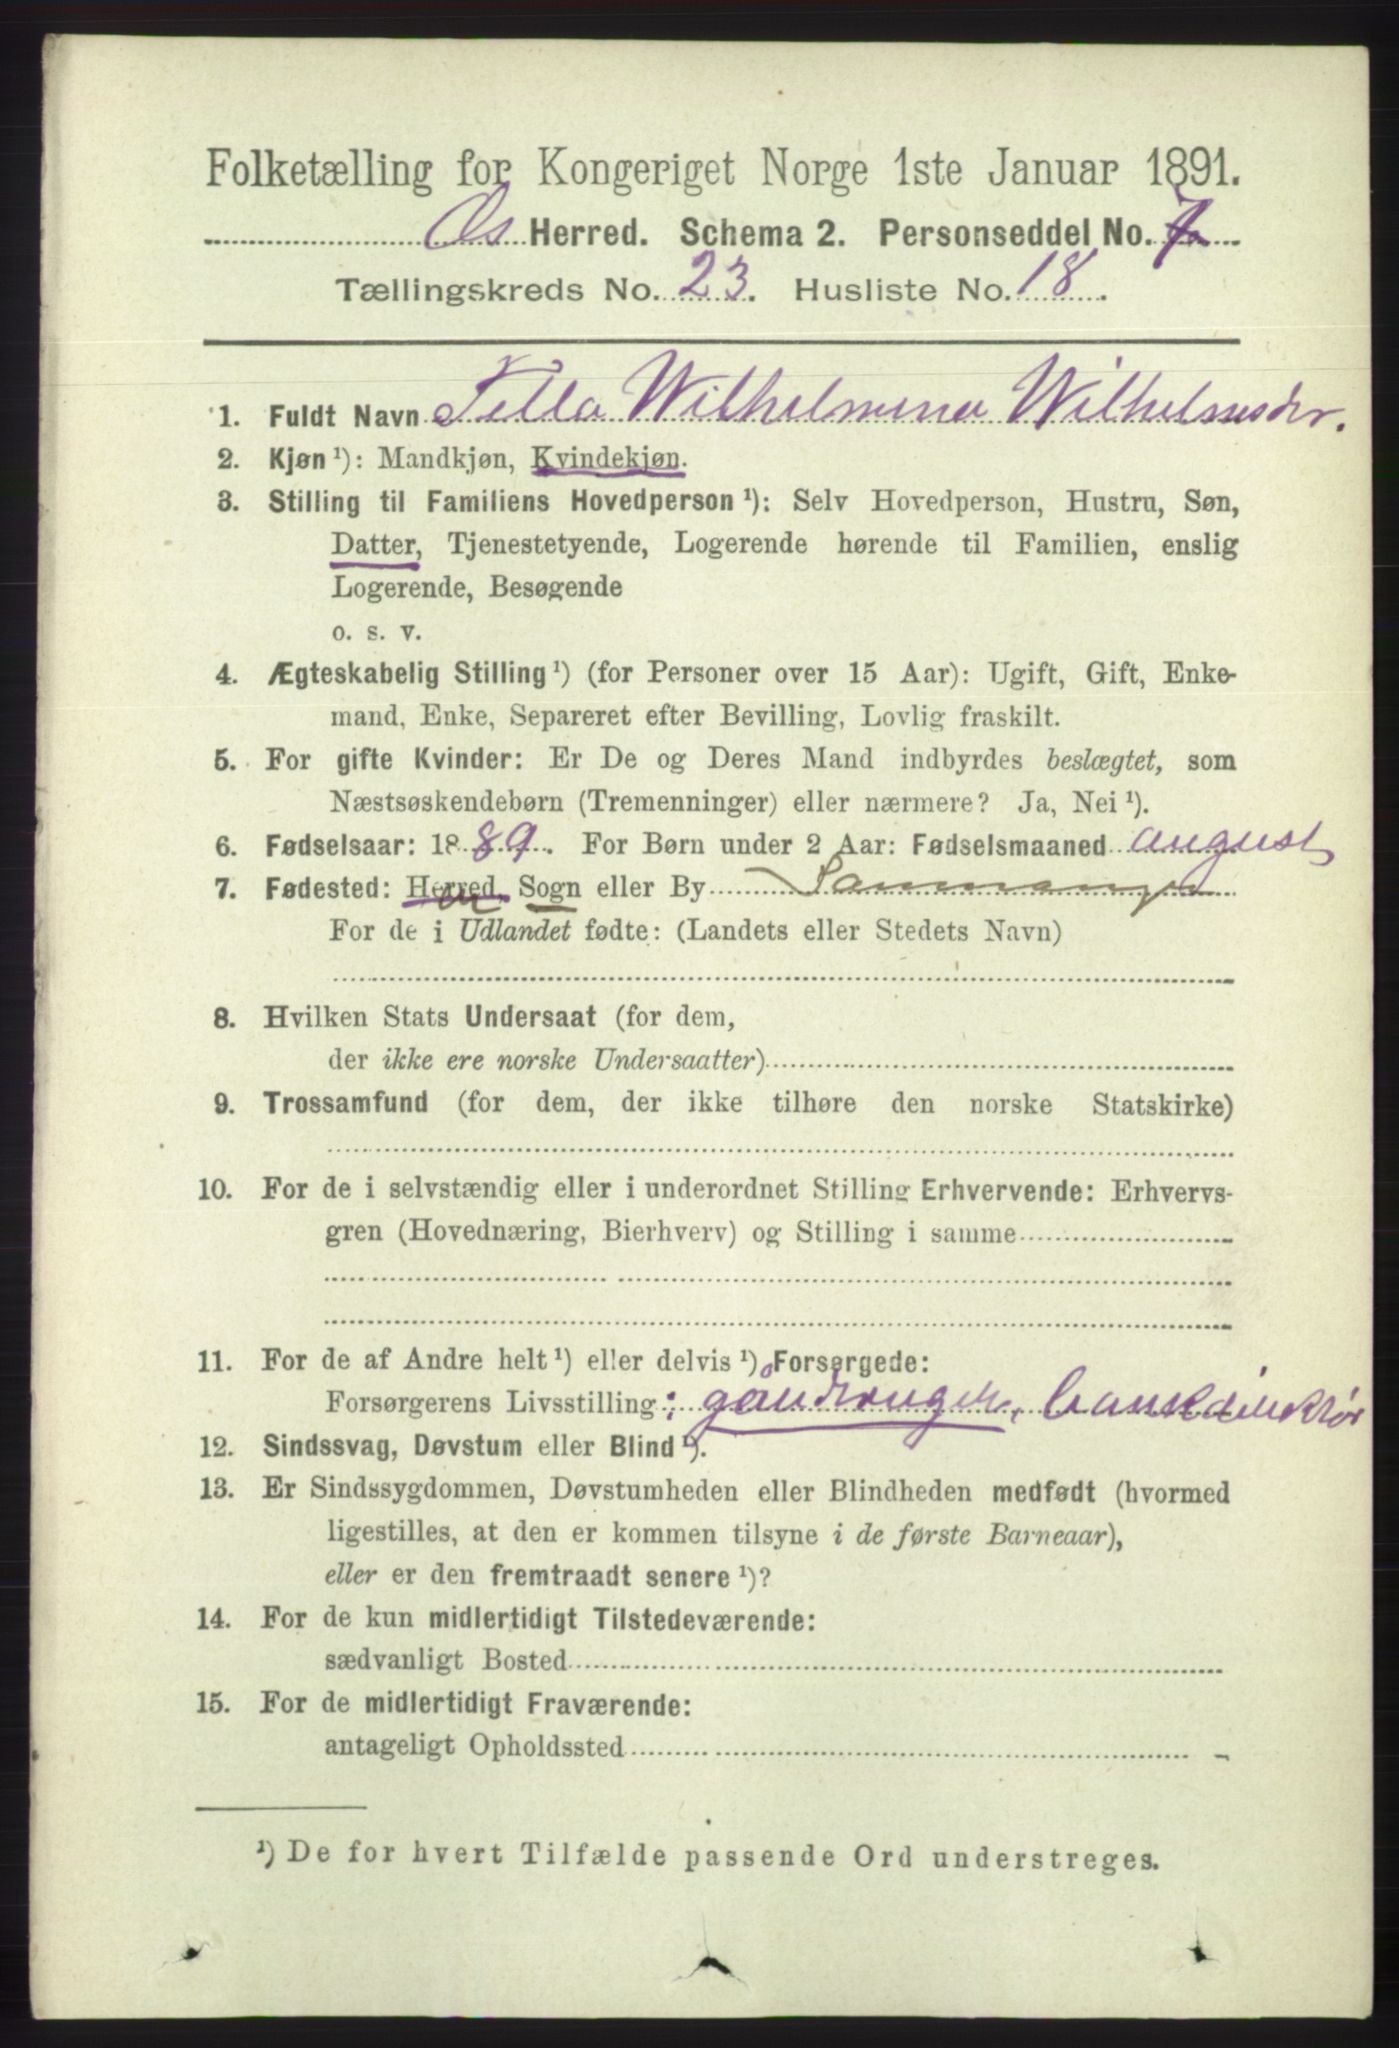 Folketælling for Kongeriget Norge 1ste Januar 1891.
Os Herred. Schema 2. Personseddel No. 7
Tællingskreds No. 23. Husliste No. 18.
1. Fuldt Navn Tella Wilhelmina Wilhelmsdtr.
2. Kjøn ¹): Mandkjøn, Kvindekjøn.
3. Stilling til Familiens Hovedperson ¹): Selv Hovedperson, Hustru, Søn,
Datter, Tjenestetyende, Logerende hørende til Familien, enslig
Logerende, Besøgende
o. s. v.
4. Ægteskabelig Stilling ¹) (for Personer over 15 Aar): Ugift, Gift, Enke-
mand, Enke, Separeret efter Bevilling, Lovlig fraskilt.
5. For gifte Kvinder: Er De og Deres Mand indbyrdes beslægtet, som
Næstsøskendebørn (Tremenninger) eller nærmere? Ja, Nei ¹).
6. Fødselsaar: 1889. For Børn under 2 Aar: Fødselsmaaned august
7. Fødested: Herred, Sogn eller By Samnanger
For de i Udlandet fødte: (Landets eller Stedets Navn)
8. Hvilken Stats Undersaat (for dem,
der ikke ere norske Undersaatter)
9. Trossamfund (for dem, der ikke tilhøre den norske Statskirke)
10. For de i selvstændig eller i underordnet Stilling Erhvervende: Erhvervs-
gren (Hovednæring, Bierhverv) og Stilling i samme
11. For de af Andre helt ¹) eller delvis ¹) Forsørgede:
Forsørgerens Livsstilling: gaardbruger, bankdirektør
12. Sindssvag, Døvstum eller Blind ¹).
13. Er Sindssygdommen, Døvstumheden eller Blindheden medfødt (hvormed
ligestilles, at den er kommen tilsyne i de første Barneaar),
eller er den fremtraadt senere ¹)?
14. For de kun midlertidigt Tilstedeværende:
sædvanligt Bosted
15. For de midlertidigt Fraværende:
antageligt Opholdssted
¹) De for hvert Tilfælde passende Ord understreges.